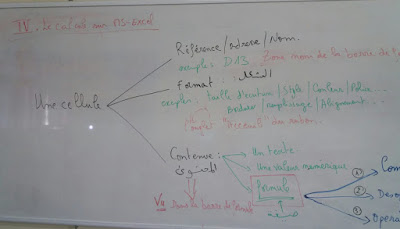 IV. Le calcul sur MS-Excel
Référence/adresse/Nom.
exemple: D13... Zone nom de la barre de
Format: الشكل
exemples: taille d'écriture/Style/Couleur/Police...
Bordure/remplissage/Alignement...
Onglet "Accueil" du ruban...
Une cellule
Contenue:
المحتوى
Un texte
Une valeur numérique
formule
صيغة
Vu dans la barre de formule
① Com
② Des
③ Opéra